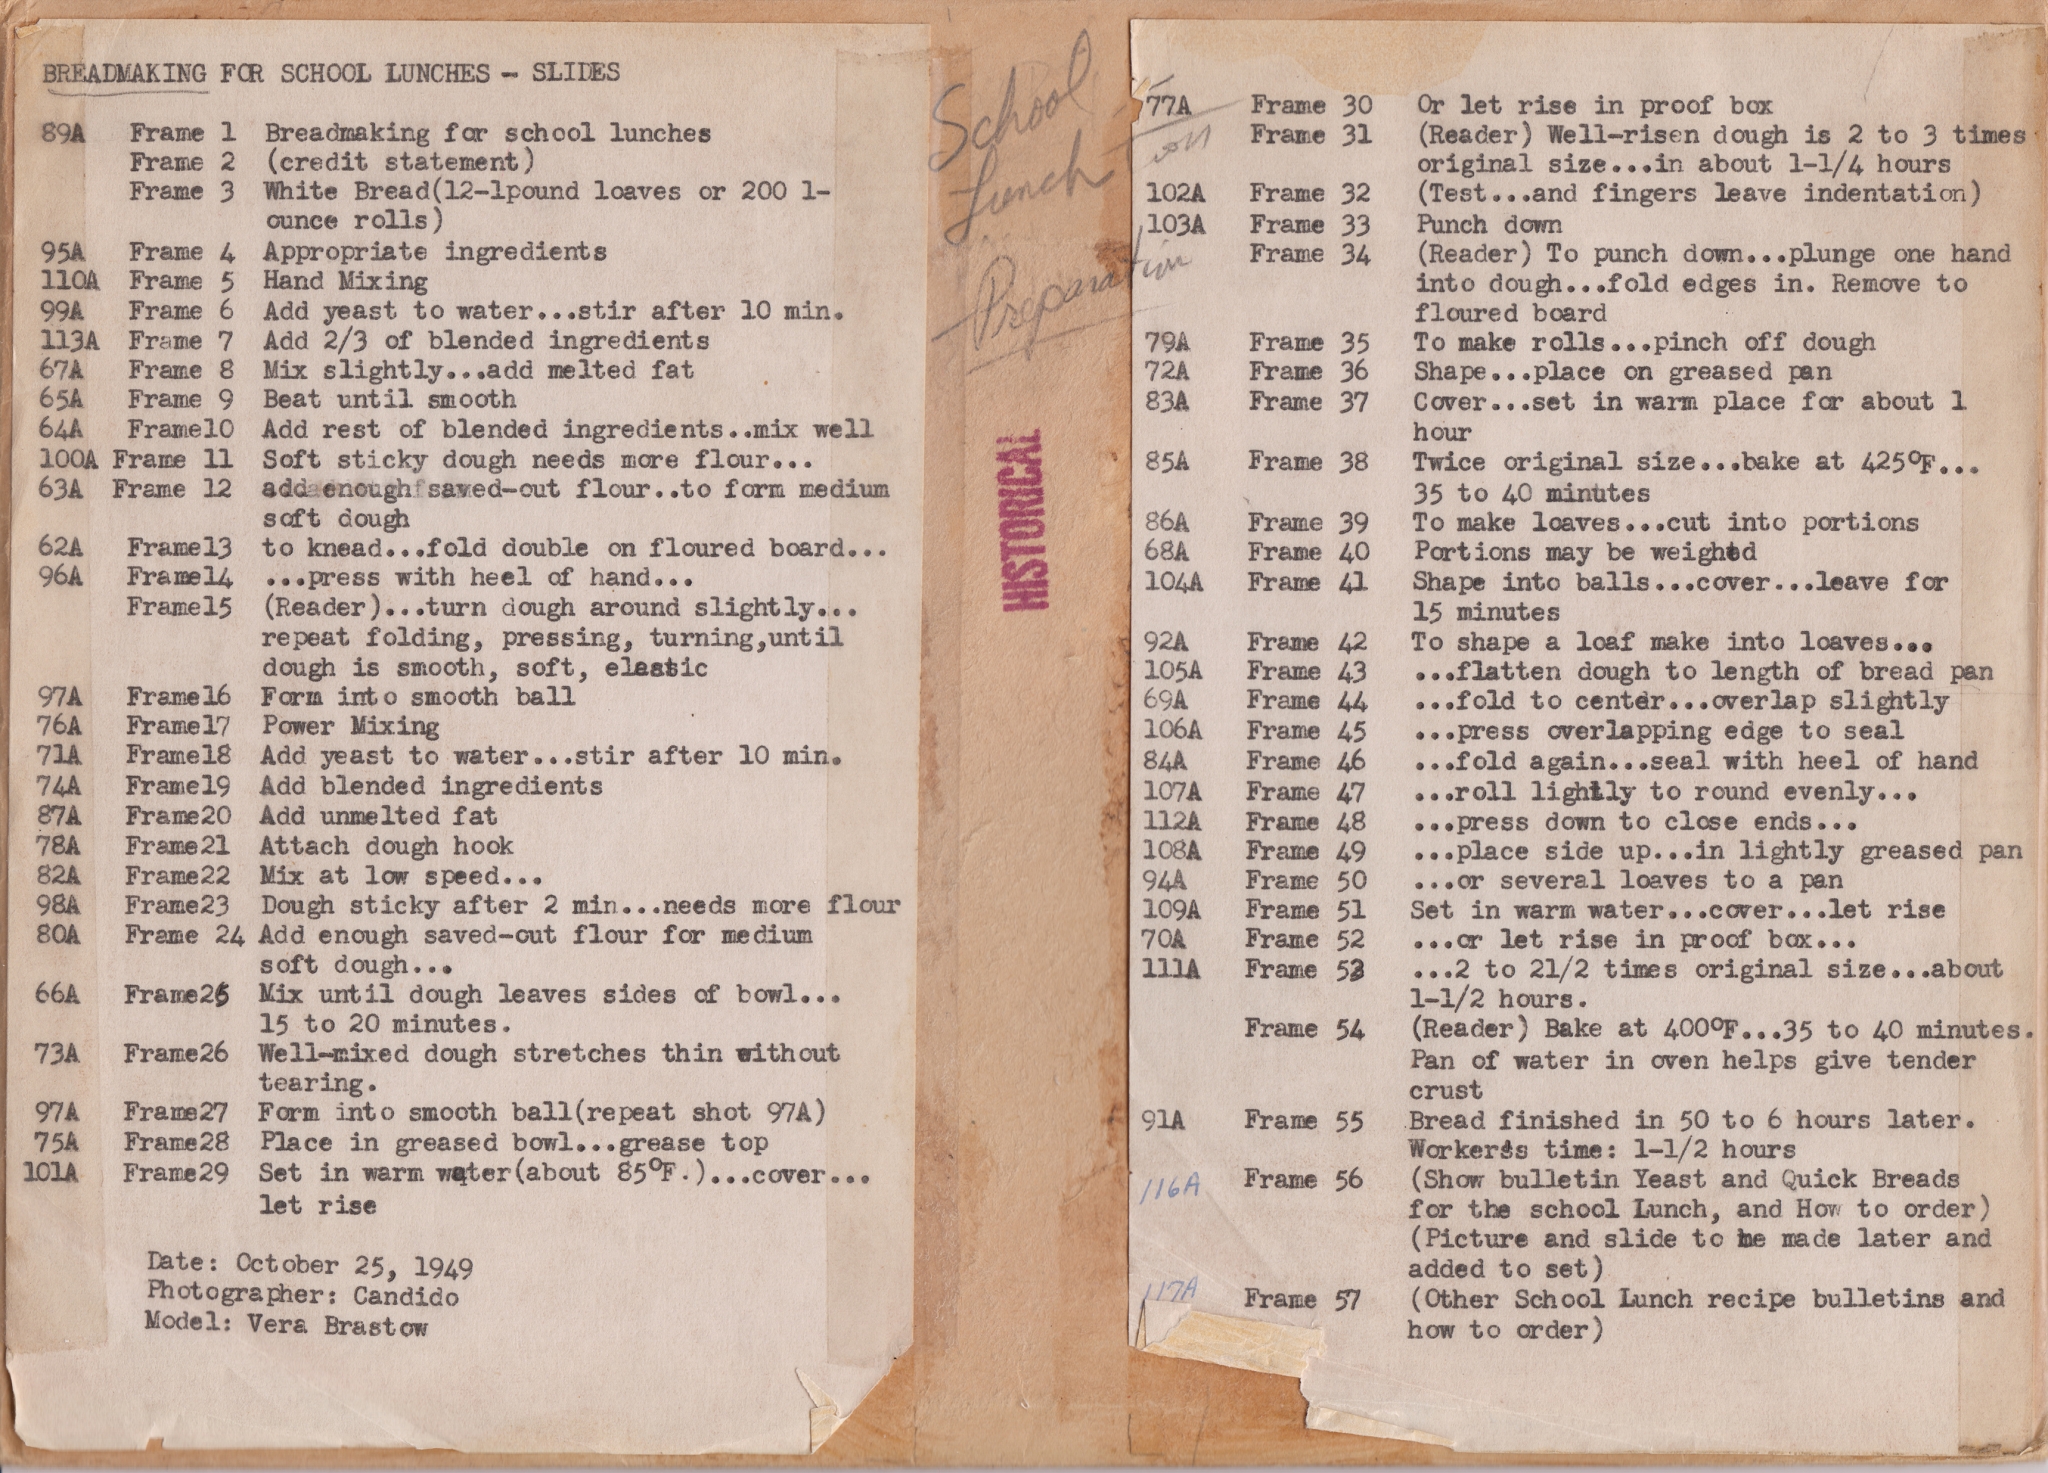 BREADMAKING FOR SCHOOL LUNCHES - SLIDES
89A Frame 1 Breadmaking for school lunches
Frame 2 (credit statement)
Frame 3 White Bread(12-1pound loaves or 200 1-
ounce rolls)
95A Frame 4 Appropriate ingredients
110A Frame 5 Hand Mixing
99A Frame 6 Add yeast to water...stir after 10 min.
113A Frame 7 Add 2/3 of blended ingredients
67A Frame 8 Mix slightly...add melted fat
65A Frame 9 Beat until smooth
64A Frame10 Add rest of blended ingredients..mix well
100A Frame 11 Soft sticky dough needs more flour...
63A Frame 12 add enough saved-out flour..to form medium
soft dough
62A Frame13 to knead...fold double on floured board...
96A Frame14 ...press with heel of hand...
Frame15 (Reader)...turn dough around slightly...
repeat folding, pressing, turning,until
dough is smooth, soft, elastic
97A Frame16 Form into smooth ball
76A Frame17 Power Mixing
71A Frame18 Add yeast to water...stir after 10 min.
74A Frame19 Add blended ingredients
87A Frame20 Add unmelted fat
78A Frame21 Attach dough hook
82A Frame22 Mix at low speed...
98A Frame23 Dough sticky after 2 min...needs more flour
80A Frame 24 Add enough saved-out flour for medium
soft dough...
66A Frame25 Mix until dough leaves sides of bowl...
15 to 20 minutes.
73A Frame26 Well-mixed dough stretches thin without
tearing.
97A Frame27 Form into smooth ball(repeat shot 97A)
75A Frame28 Place in greased bowl...grease top
101A Frame29 Set in warm water(about 85°F.)...cover...
let rise
Date: October 25, 1949
Photographer: Candido
Model: Vera Brastow
School
Lunch
Preparation
HISTORICAL
77A Frame 30 Or let rise in proof box
Frame 31 (Reader) Well-risen dough is 2 to 3 times
original size...in about 1-1/4 hours
102A Frame 32 (Test...and fingers leave indentation)
103A Frame 33 Punch down
Frame 34 (Reader) To punch down...plunge one hand
into dough...fold edges in. Remove to
floured board
79A Frame 35 To make rolls...pinch off dough
72A Frame 36 Shape...place on greased pan
83A Frame 37 Cover...set in warm place for about 1
hour
85A Frame 38 Twice original size...bake at 425°F...
35 to 40 minutes
86A Frame 39 To make loaves...cut into portions
68A Frame 40 Portions may be weighed
104A Frame 41 Shape into balls...cover...leave for
15 minutes
92A Frame 42 To shape a loaf make into loaves...
105A Frame 43 ...flatten dough to length of bread pan
69A Frame 44 ...fold to center...overlap slightly
106A Frame 45 ...press overlapping edge to seal
84A Frame 46 ...fold again...seal with heel of hand
107A Frame 47 ...roll lightly to round evenly...
112A Frame 48 ...press down to close ends...
108A Frame 49 ...place side up...in lightly greased pan
94A Frame 50 ...or several loaves to a pan
109A Frame 51 Set in warm water...cover...let rise
70A Frame 52 ...or let rise in proof box...
111A Frame 53 ...2 to 21/2 times original size...about
1-1/2 hours.
Frame 54 (Reader) Bake at 400°F...35 to 40 minutes.
Pan of water in oven helps give tender
crust
91A Frame 55 Bread finished in 50 to 6 hours later.
Worker's time: 1-1/2 hours
116A Frame 56 (Show bulletin Yeast and Quick Breads
for the school Lunch, and How to order)
(Picture and slide to be made later and
added to set)
117A Frame 57 (Other School Lunch recipe bulletins and
how to order)